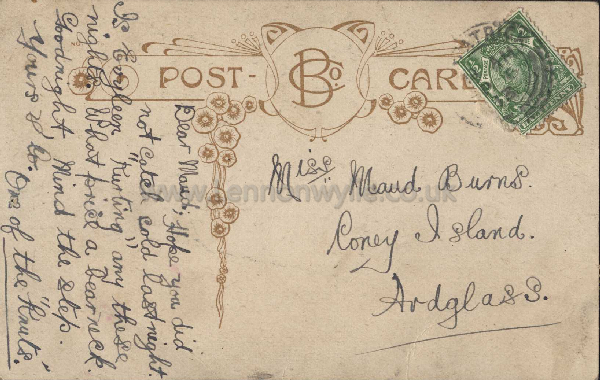 POST- B Co CARD
Dear Maud; Hope you did
not catch cold last night.
Is Eveleen "flirting" any these
nights. What price a bearneck.
Goodnight, Mind the step.
Yours &
One of the "Knuts".
Miss Maud Burns.
Coney Island.
Ardglass.
www.lennonwylie.co.uk